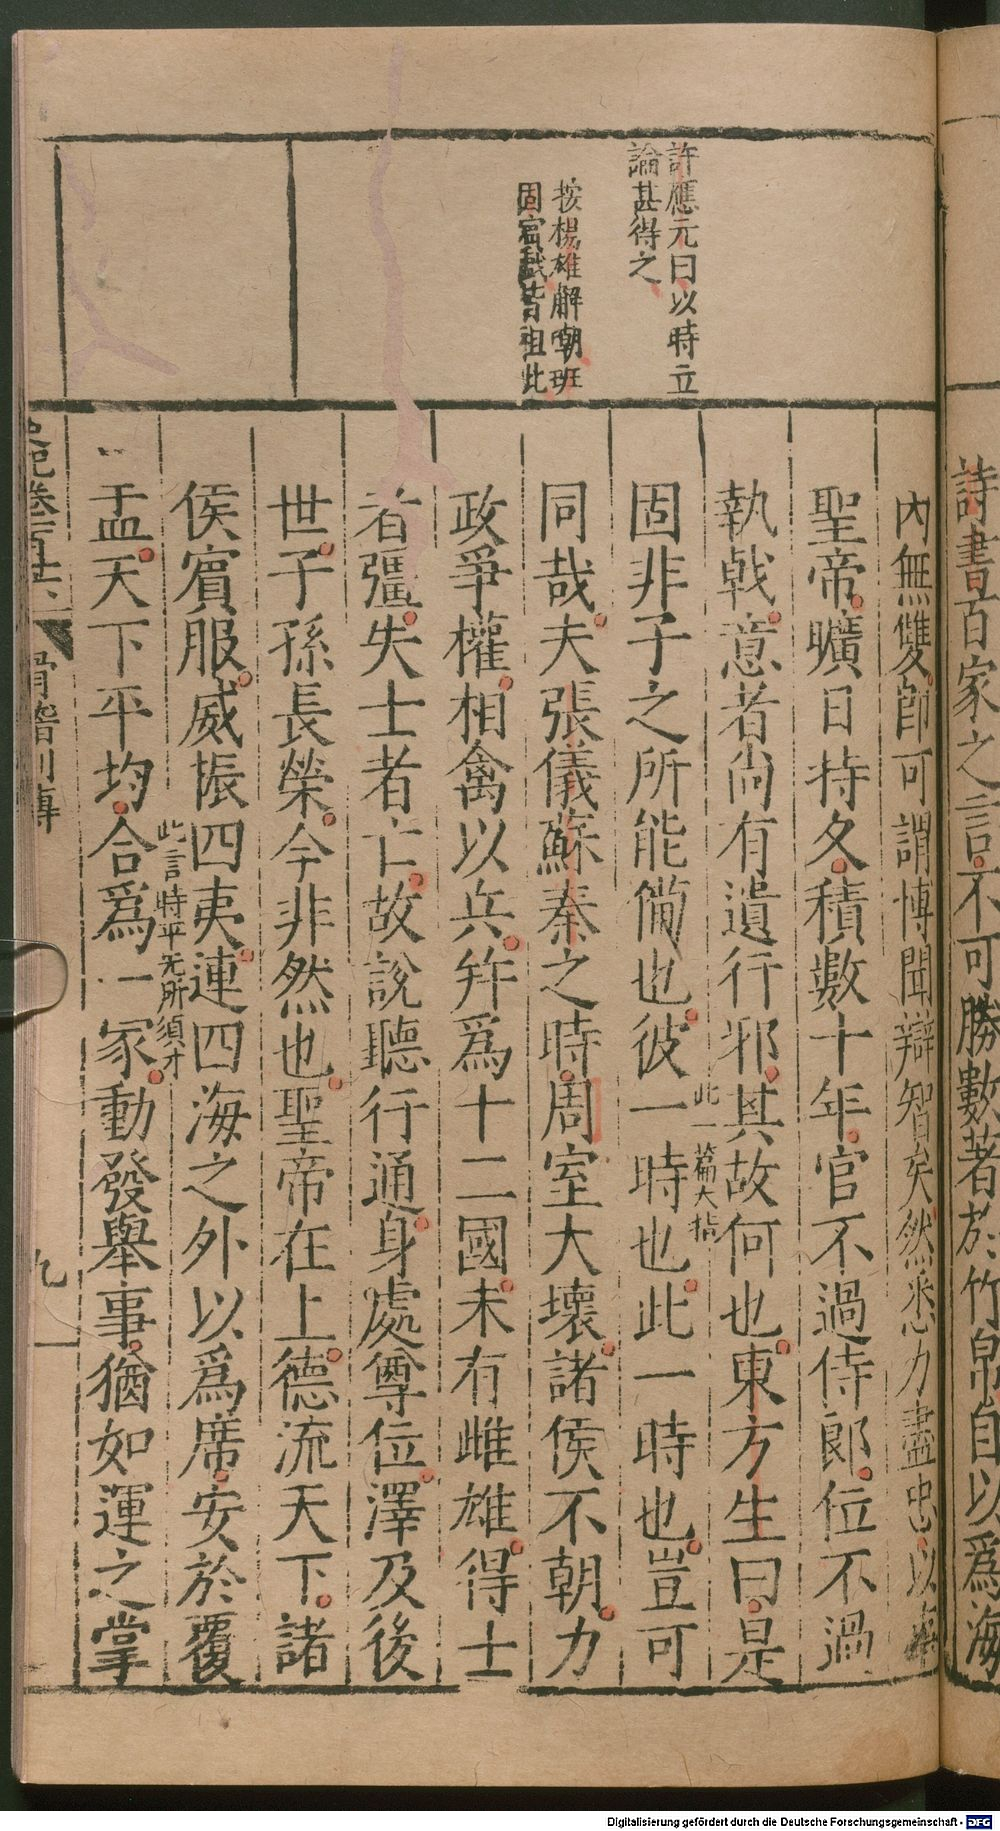 詩書百家之言不可勝數著於竹帛自以爲海
許應元曰以時立
論甚得之
按楊雄解嘲班
固賓戲皆祖此
內無雙卽可謂博聞辯智矣然悉力盡忠以事
聖帝曠日持久積數十年官不過侍郎位不過
執戟意者尚有遺行邪其故何也東方生曰是
此一篇大指
固非子之所能備也彼一時也此一時也豈可
同哉夫張儀蘇秦之時周室大壞諸侯不朝力
政爭權相禽以兵幷爲十二國未有雌雄得士
者彊失士者亡故說聽行通身處尊位澤及後
世子孫長榮今非然也聖帝在上德流天下諸
侯賓服威振四夷連四海之外以爲席安於覆
此言時平无所須才
盂天下平均合爲一家動發舉事猶如運之掌
史記卷一百廿六 滑稽列傳
九
Digitalisierung gefördert durch die Deutsche Forschungsgemeinschaft - DFG